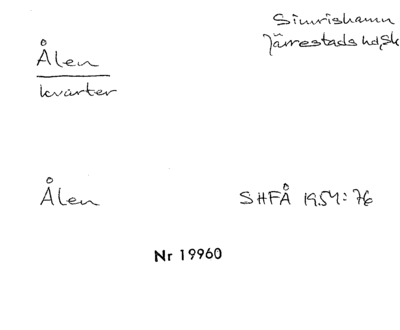 Simrishamn
Järrestads hd, Sk
Ålen
kvarter
Ålen
SHFÅ 1954: 76
Nr 19960